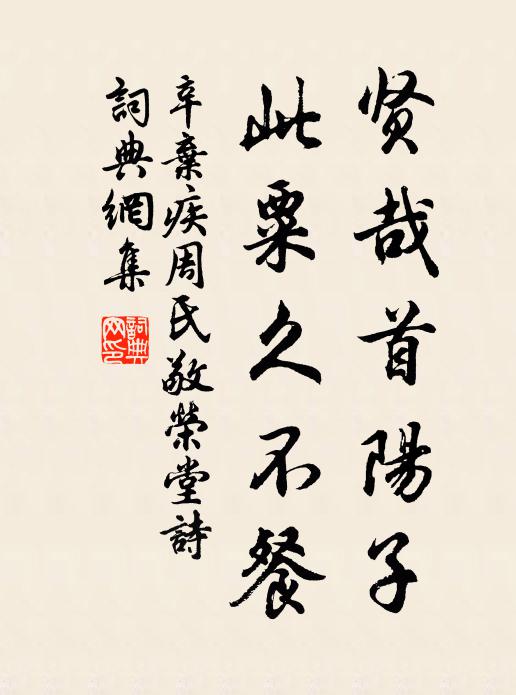 贤哉首陽子
此粟久不餐
辛棄疾周氏敬榮堂詩
詞典網集
詞典网印